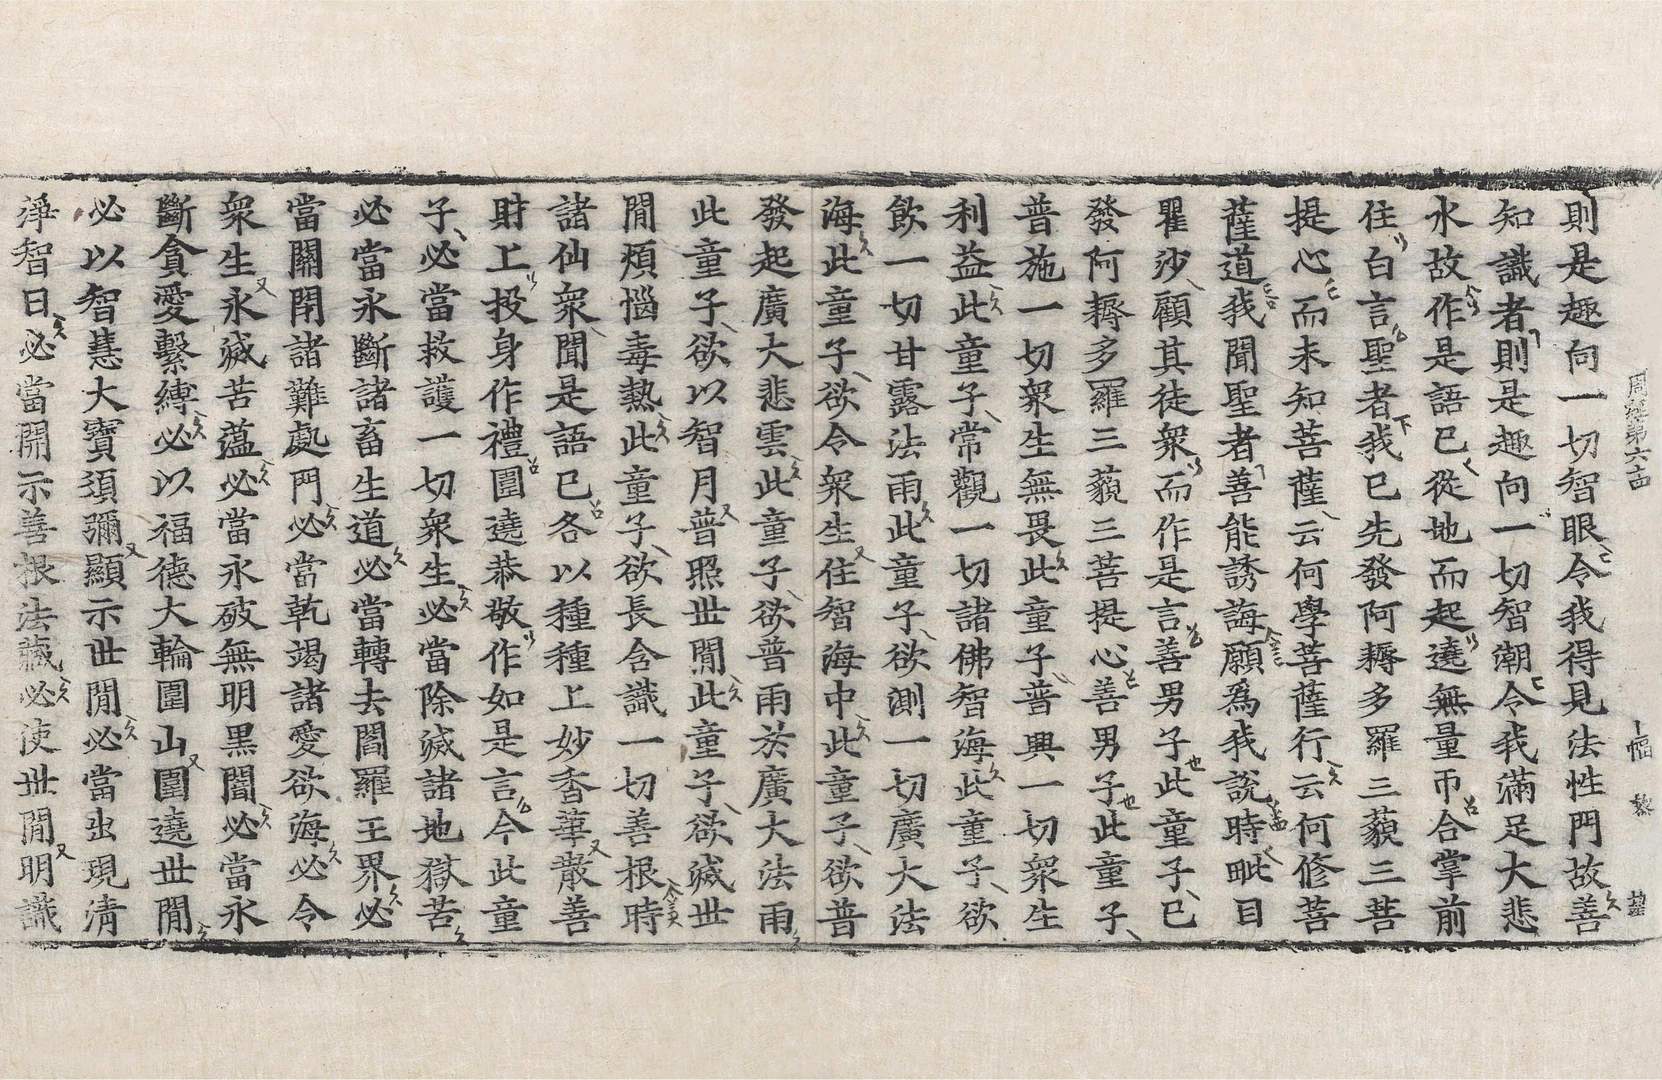 周經第六十四 十幅 黎 
則是趣向一切智眼令我得見法性門故善
知識者則是趣向一切智潮令我滿足大悲
水故作是語已從地而起遶無量帀合掌前
住白言聖者我已先發阿耨多羅三藐三菩
提心而未知菩薩云何學菩薩行云何修菩
薩道我聞聖者善能誘誨願爲我說時毗目
瞿沙顧其徒衆而作是言善男子此童子已
發阿耨多羅三藐三菩提心善男子此童子
普施一切衆生無畏此童子普興一切衆生
利益此童子常觀一切諸佛智海此童子欲
飮一切甘露法雨此童子欲測一切廣大法
海此童子欲令衆生住智海中此童子欲普
發起廣大悲雲此童子欲普雨於廣大法雨
此童子欲以智月普照世閒此童子欲滅世
閒煩惱毒熱此童子欲長含識一切善根時
諸仙衆聞是語已各以種種上妙香華散善
財上投身作禮圍遶恭敬作如是言今此童
子必當救護一切衆生必當除滅諸地獄苦
必當永斷諸畜生道必當轉去閻羅王界必
當關閉諸難處門必當乾竭諸愛欲海必令
衆生永滅苦蘊必當永破無明黑闇必當永
斷貪愛繫縛必以福德大輪圍山圍遶世閒
必以智慧大寶須彌顯示世閒必當出現清
淨智日必當開示善根法藏必使世閒明識